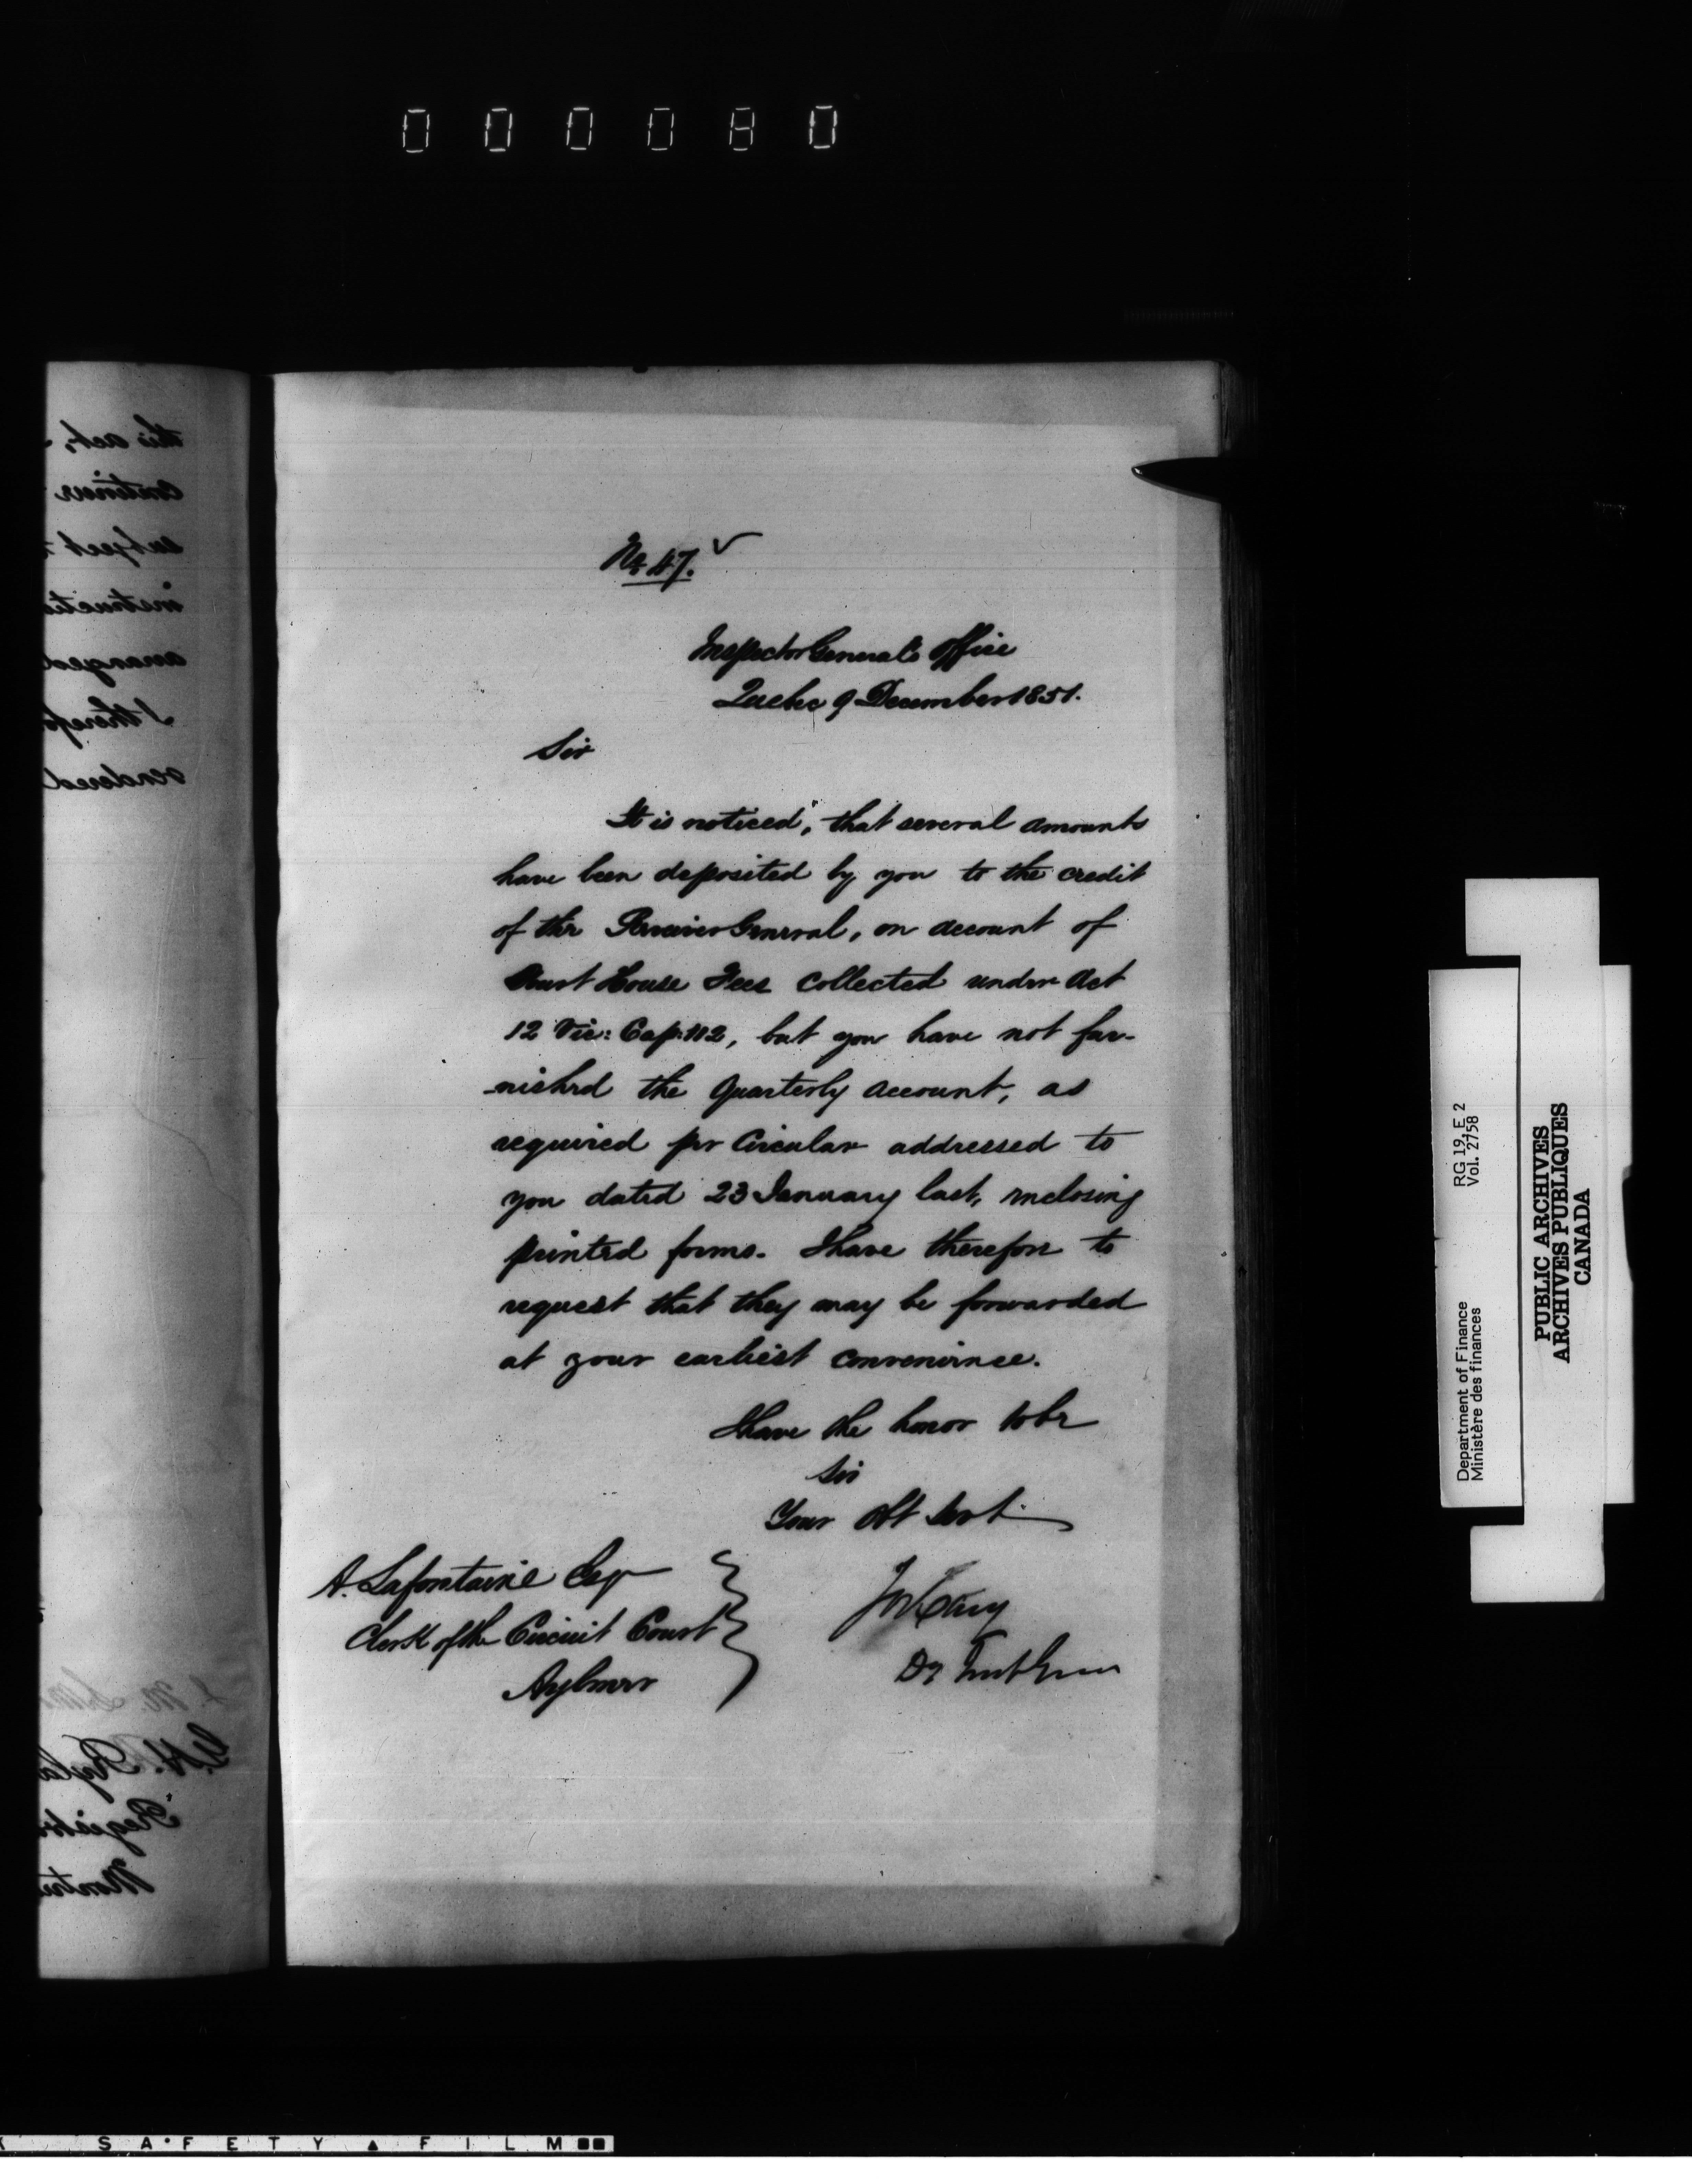 000080
No 47.
Inspector General's Office
Quebec 9 December 1851.
Sir
It is noticed, that several amounts
have been deposited by you to the credit
of the Receiver General, on account of
Court House Fees collected under Act
12 Vic: Cap: 112, but you have not fur-
-nished the Quarterly account, as
required per Circular addressed to
you dated 23 January last, inclosing
printed forms. I have therefore to
request that they may be forwarded
at your earliest convenience.
I have the honor to be
Sir
Your Obt Servt
A. Lafontaine Esqr
Clerk of the Circuit Court
Aylmer
Jos Cary
Dy Inspr Genl
this act,
continues
subject
arranged
rendered
Department of Finance
Ministère des finances
RG 19, E 2
Vol. 2758
PUBLIC ARCHIVES
ARCHIVES PUBLIQUES
CANADA
SAFETY FILM